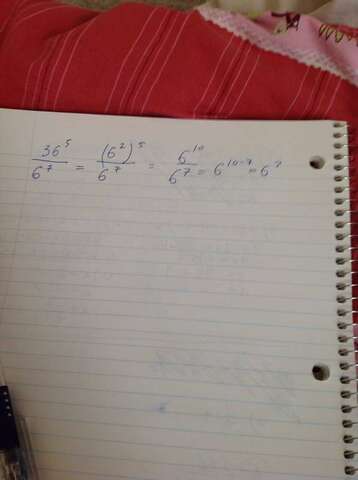 36⁵/6⁷ = (6²)⁵/6⁷ = 6¹⁰/6⁷ = 6¹⁰⁻⁷ = 6³